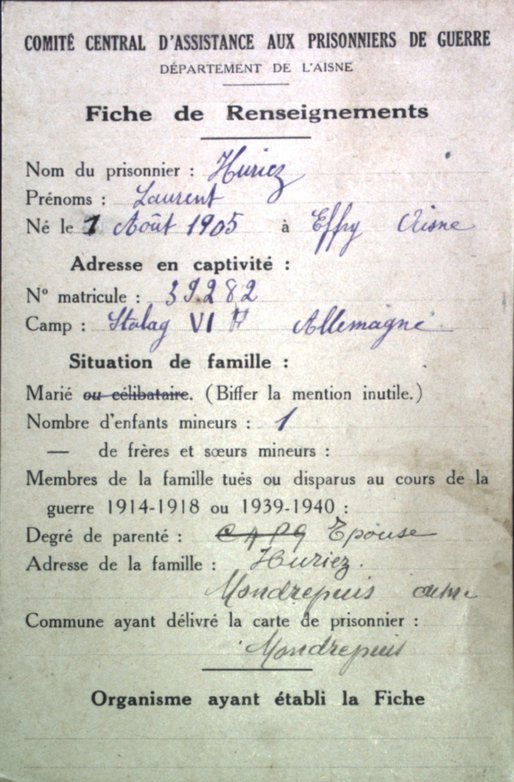 COMITÉ CENTRAL D'ASSISTANCE AUX PRISONNIERS DE GUERRE
DÉPARTEMENT DE L'AISNE
Fiche de Renseignements
Nom du prisonnier : Huriez
Prénoms : Laurent
Né le 1 Août 1905 à Effry Aisne
Adresse en captivité :
N° matricule : 39282
Camp : Stalag VI Allemagne
Situation de famille :
Marié ou célibataire. (Biffer la mention inutile.)
Nombre d'enfants mineurs : 1
— de frères et sœurs mineurs :
Membres de la famille tués ou disparus au cours de la
guerre 1914-1918 ou 1939-1940 :
Degré de parenté : Epouse
Adresse de la famille : Huriez.
Mondrepuis aisne
Commune ayant délivré la carte de prisonnier :
Mondrepuis
Organisme ayant établi la Fiche